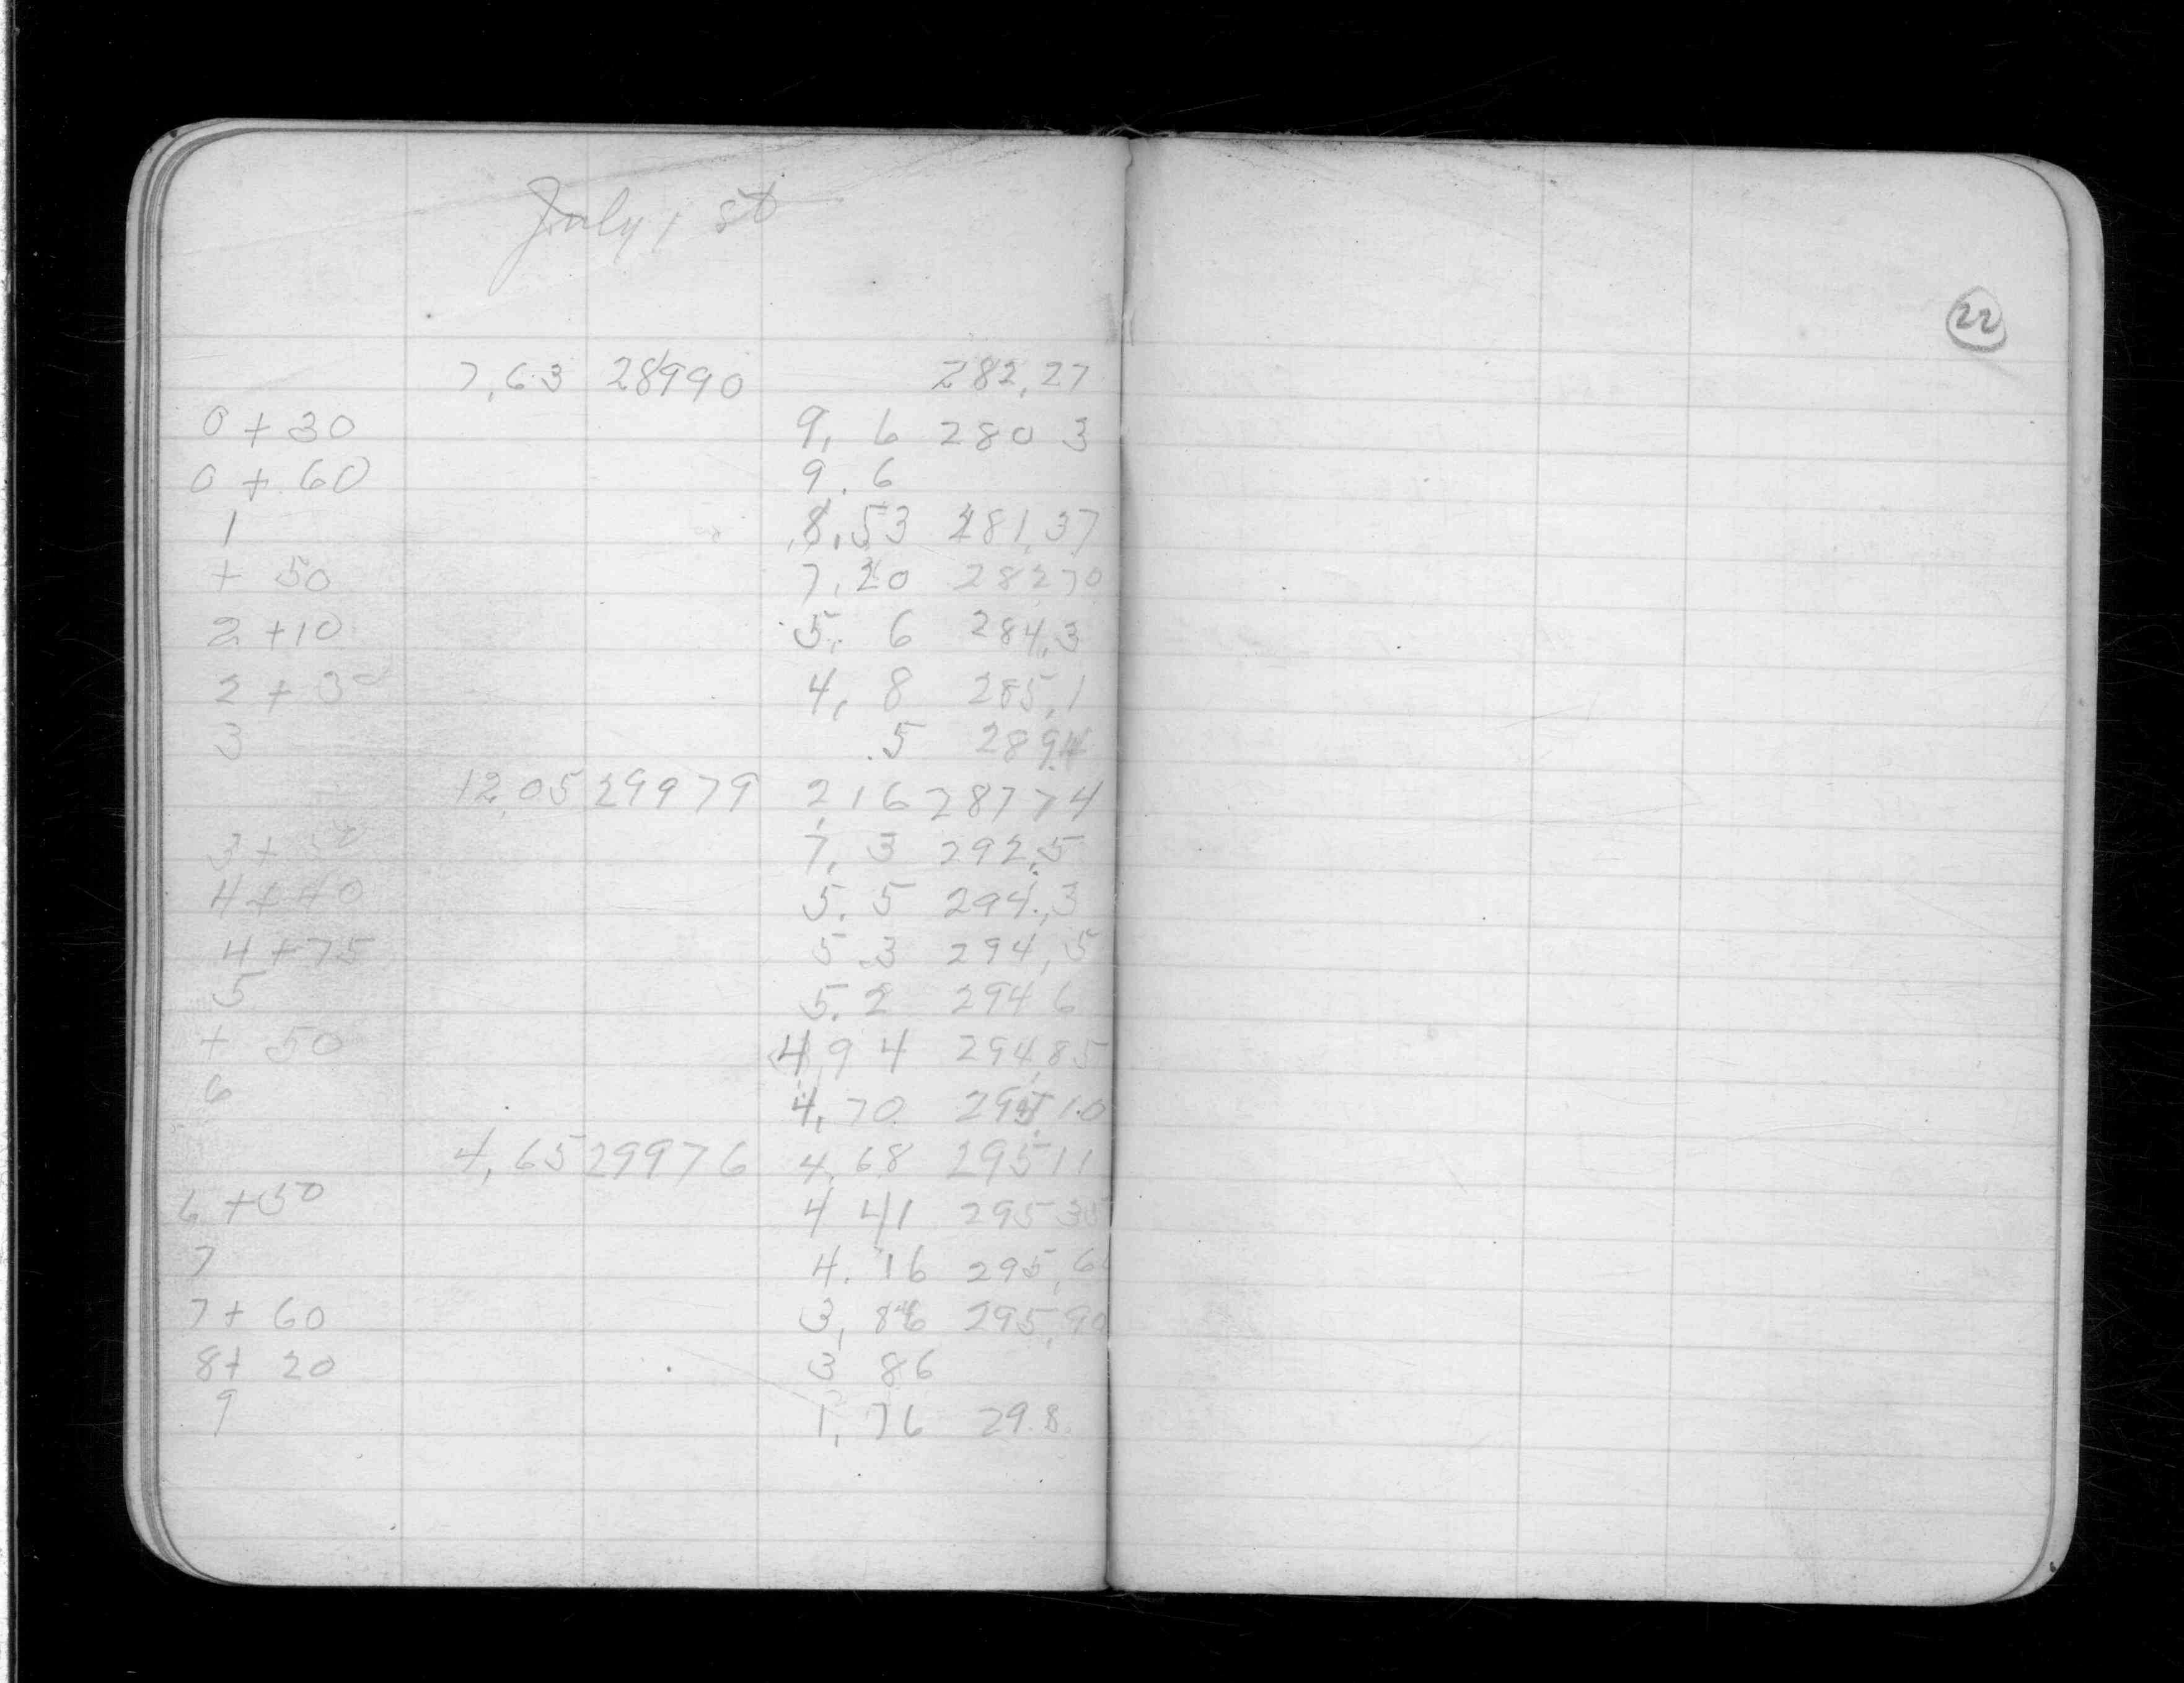 July 1 st
22
7,63 28990 282,27
0 + 30 9, 6 280 3
0 + 60 9. 6
1 8,53 281,37
+ 50 7,20 28270
2 +10 5. 6 284,3
2 + 30 4, 8 285,1
3 .5 289.4
12,05 29979 2,16 28774
3 + 50 7, 3 292,5
4 + 40 5. 5 294,3
4 + 75 5.3 294,5
5 5.2 294 6
+ 50 4,94 294,85
6 4,70 295,10
4,65 29976 4,68 29511
6 +50 4 41 295 35
7 4. 16 295,6
7+ 60 3,86 295,90
8+ 20 3 86
9 1,76 29.8.